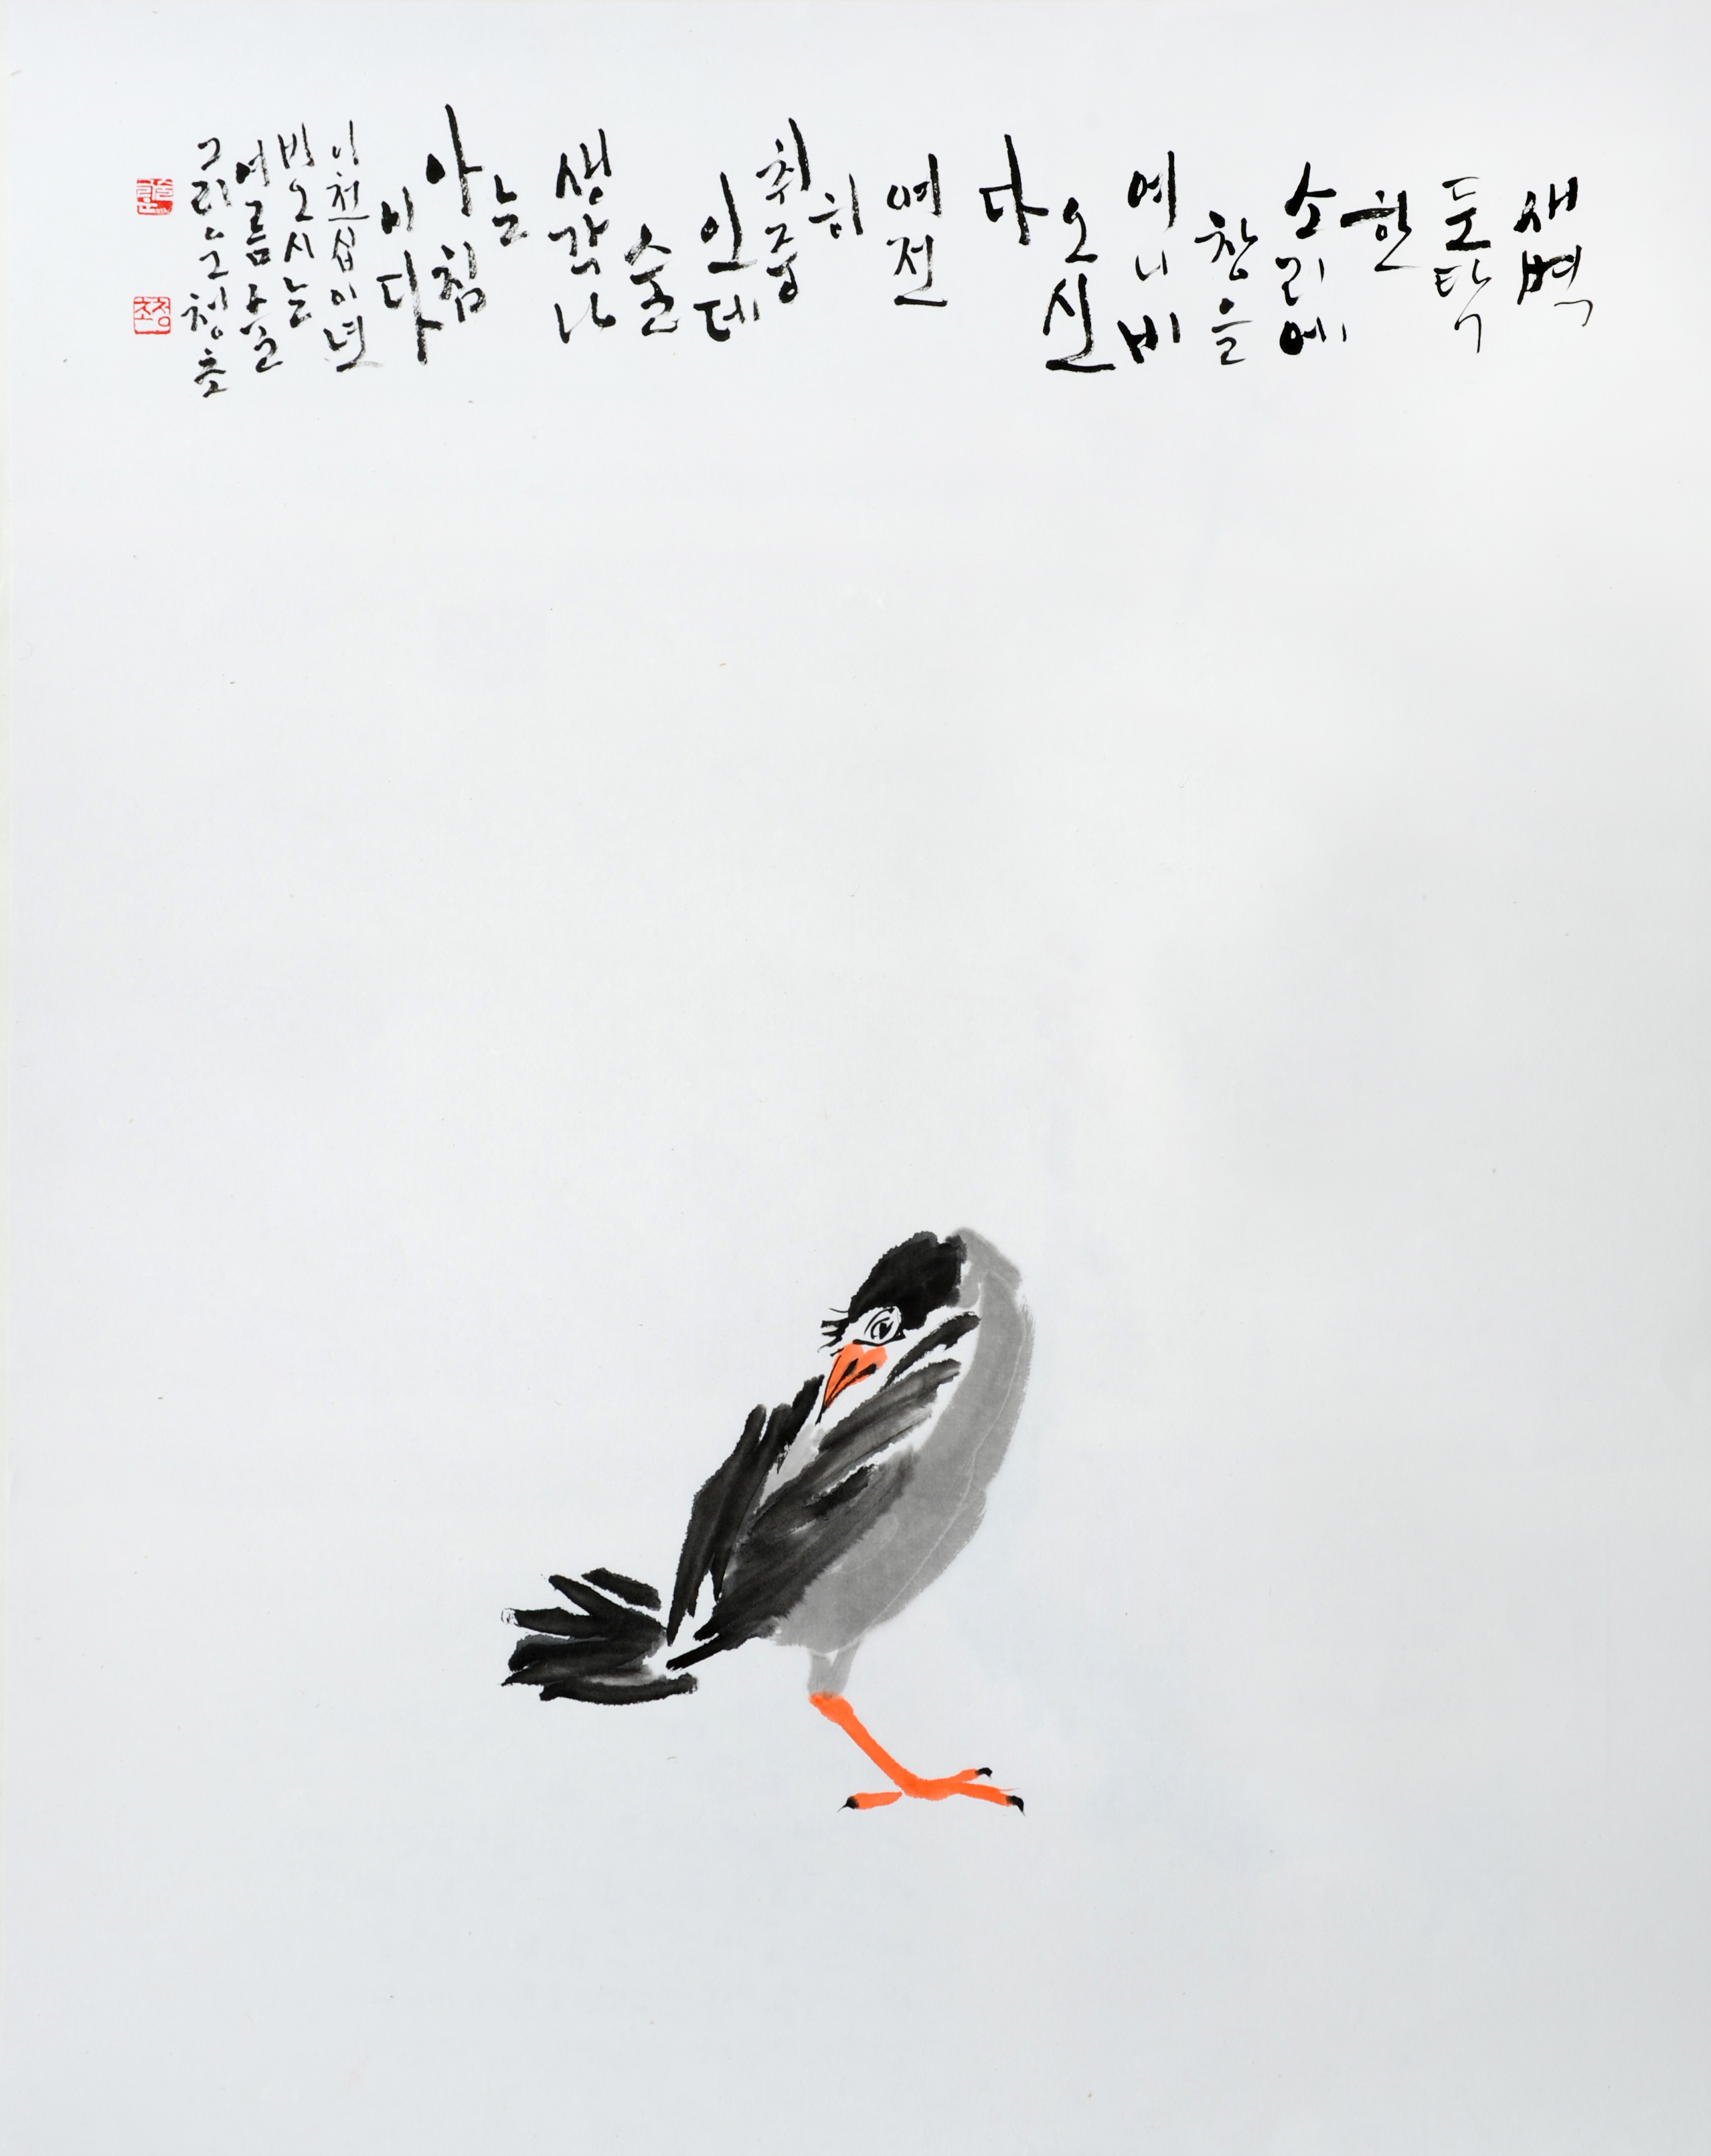 새벽
둔탁
한
소리에
창을
여니 비
오신
다
여전
히
취중
인데
술
생각나
는
아침
이다
이천십이년
비오시는
여름날
청초